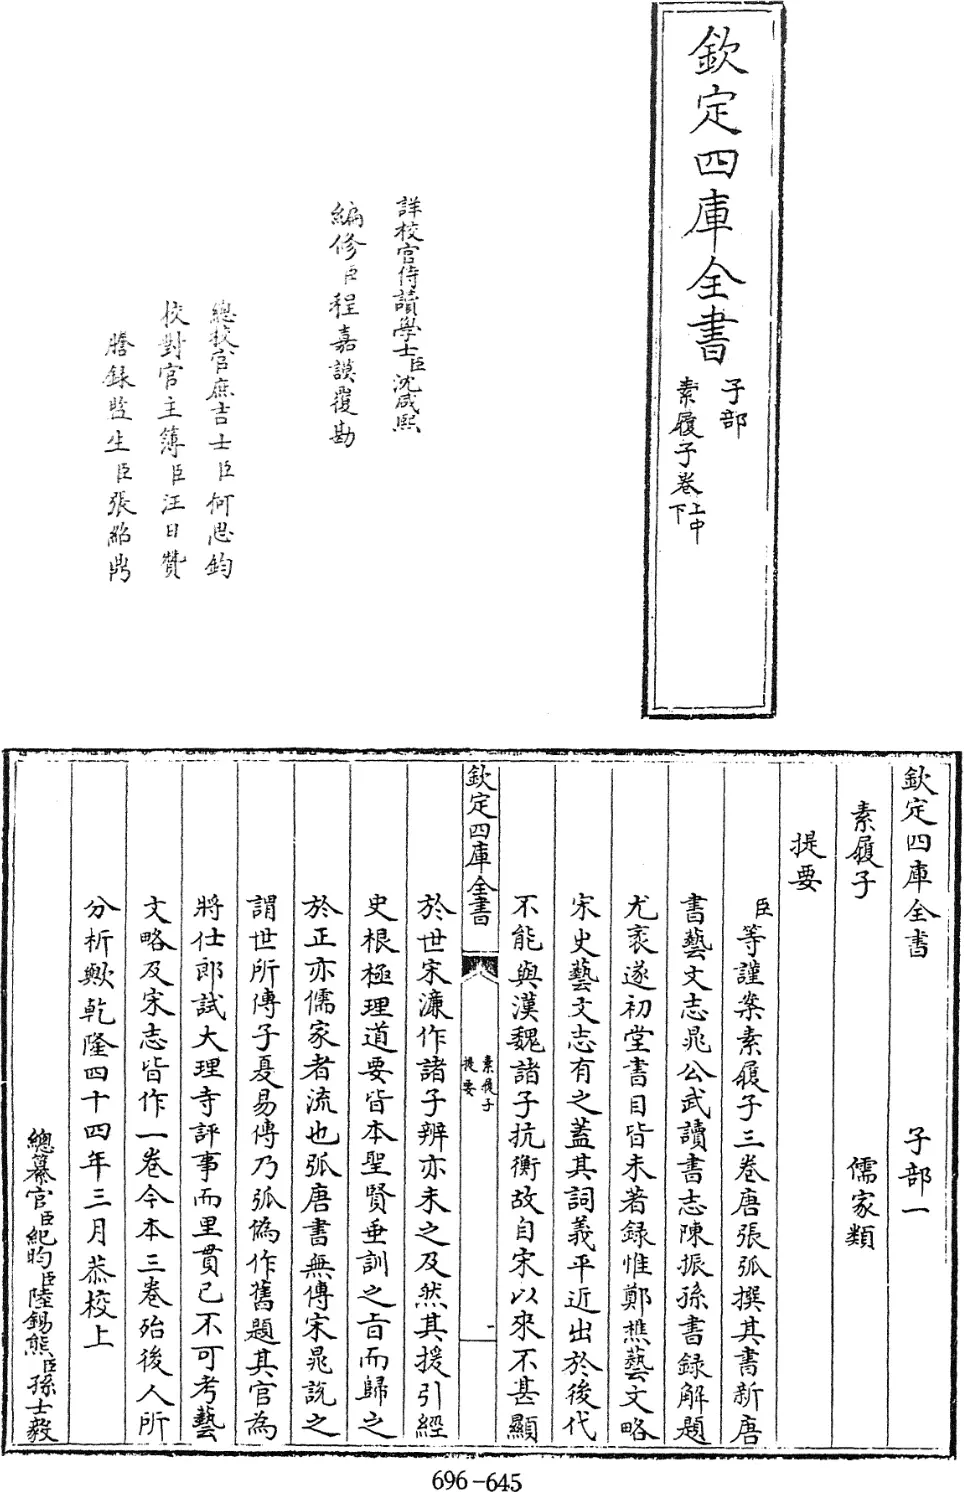 欽定四庫全書
子部
素履子卷上中下
詳校官侍讀學士臣沈咸熙
編修臣程嘉謨覆勘
總校官庶吉士臣何思鈞
校對官主簿臣汪日贊
謄錄監生臣張紹鹏
欽定四庫全書 子部一
素履子 儒家類
提要
臣等謹案素履子三卷唐張弧撰其書新唐
書藝文志晁公武讀書志陳振孫書録解題
尤袤遂初堂書目皆未著録惟鄭樵藝文略
宋史藝文志有之蓋其詞義平近出於後代
不能與漢魏諸子抗衡故自宋以來不甚顯
欽定四庫全書
素履子
提要
一
於世宋濂作諸子辨亦未之及然其援引經
史根極理道要皆本聖賢垂訓之旨而歸之
於正亦儒家者流也弧唐書無傳宋晁說之
謂世所傳子夏易傳乃弧偽作舊題其官為
將仕郎試大理寺評事而里貫已不可考藝
文略及宋志皆作一卷今本三卷殆後人所
分析歟乾隆四十四年三月恭校上
總纂官臣紀昀臣陸錫熊臣孫士毅
696-645